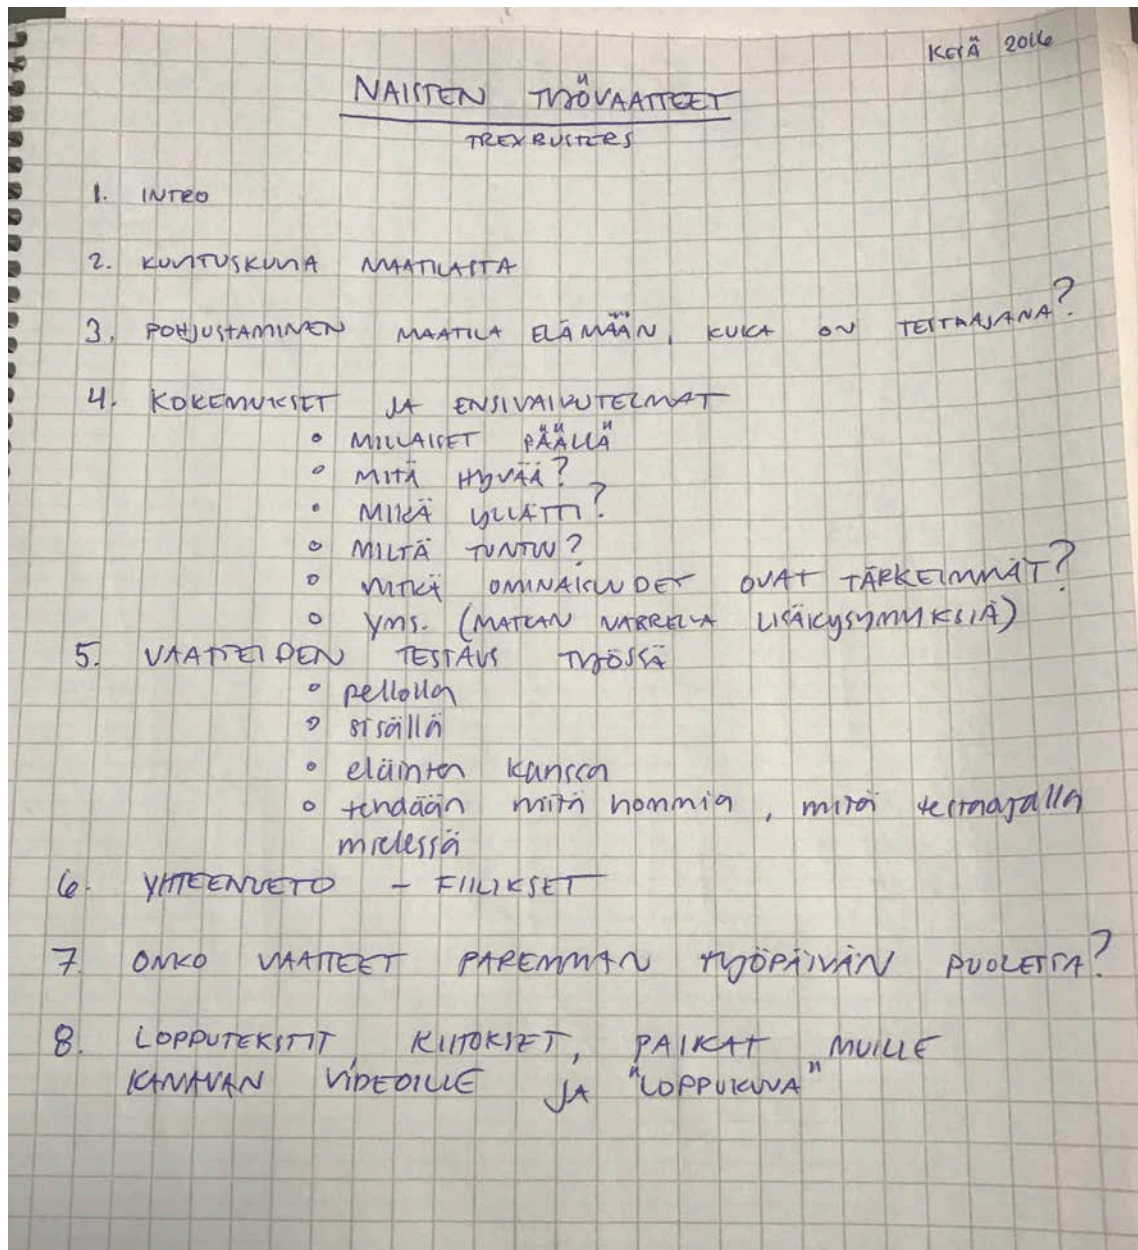 KESÄ 2016
NAISTEN TYÖVAATTEET
TREXBUSTERS
1. INTRO
2. KUVITUSKUVIA MAATILASTA
3. POHJUSTAMINEN MAATILA ELÄMÄÄN, KUKA ON TESTAAJANA?
4. KOKEMUKSET JA ENSIVAIKUTELMAT
° MILLAISET PÄÄLLÄ
° MITÄ HYVÄÄ?
° MIKÄ YLLÄTTI?
° MILTÄ TUNTUU?
° MITKÄ OMINAISUUDET OVAT TÄRKEIMMÄT?
° yms. (MATKAN VARRELLA LISÄKYSYMYKSIÄ)
5. VAATTEIDEN TESTAUS TYÖSSÄ
° pellolla
° sisällä
° eläinten kanssa
° tehdään niitä hommia, mitä testaajalla
mielessä
6. YHTEENVETO - FIILIKSET
7. ONKO VAATTEET PAREMMAN TYÖPÄIVÄN PUOLESTA?
8. LOPPUTEKSTIT, KIITOKSET, PAIKAT MUILLE
KANAVAN VIDEOILLE JA "LOPPUKUVA"